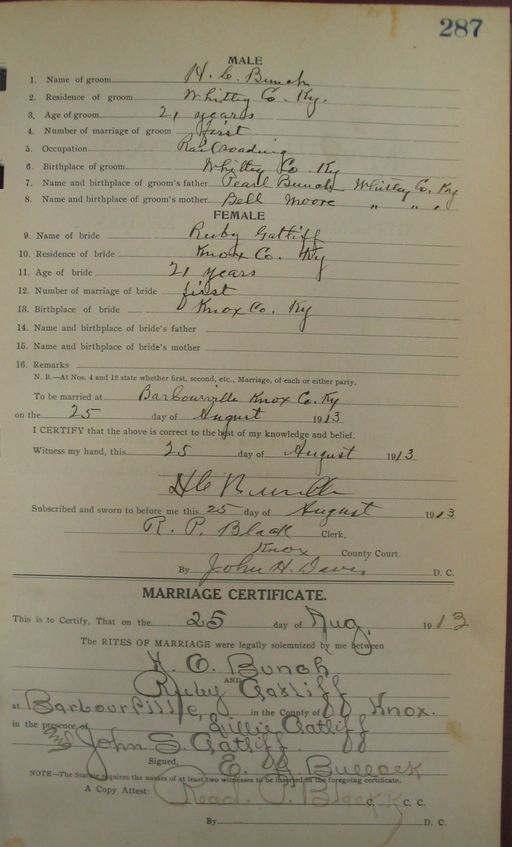 287
MALE
1. Name of groom H. C. Bunch
2. Residence of groom Whitley Co. Ky.
3. Age of groom 21 years
4. Number of marriage of groom first
5. Occupation Railroading
6. Birthplace of groom Whitley Co Ky
7. Name and birthplace of groom's father Pearl Bunch Whitley Co. Ky
8. Name and birthplace of groom's mother Bell Moore " " "
FEMALE
9. Name of bride Ruby Gatliff
10. Residence of bride Knox Co. Ky
11. Age of bride 21 years
12. Number of marriage of bride first
13. Birthplace of bride Knox Co. Ky
14. Name and birthplace of bride's father
15. Name and birthplace of bride's mother
16. Remarks
N. B.—At Nos. 4 and 12 state whether first, second, etc., Marriage, of each or either party.
To be married at Barbourville Knox Co. Ky
on the 25 day of August 1913
I CERTIFY that the above is correct to the best of my knowledge and belief.
Witness my hand, this 25 day of August 1913
H C Bunch
Subscribed and sworn to before me this 25 day of August 1913
R. P. Black Clerk,
Knox County Court.
By John H. Davis D. C.
MARRIAGE CERTIFICATE.
This is to Certify, That on the 25 day of Aug. 1913
The RITES OF MARRIAGE were legally solemnized by me between
H. C. Bunch
AND
Ruby Gatliff
at Barbourville, in the County of Knox.
in the presence of Lillie Gatliff
and John S. Gatliff.
Signed, E. Bullock
NOTE—The Statute requires the names of at least two witnesses to be inserted in the foregoing certificate.
A Copy Attest: Read. P. Black C. C. C.
By D. C.